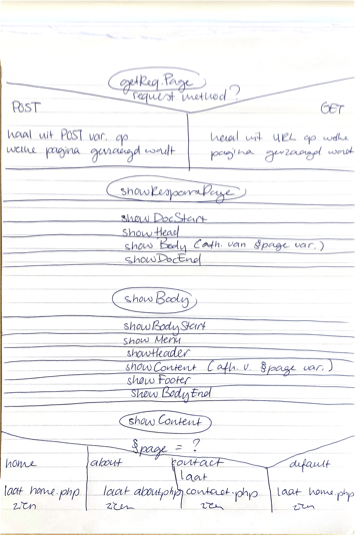 getReq.Page
request method?
POST GET
haal uit POST var. op haal uit URL op welke
welke pagina gevraagd wordt pagina gevraagd wordt
showResponsPage
show DocStart
show Head
show Body (afh. van $page var.)
show DocEnd
show Body
show Body Start
show Menu
show Header
show Content (afh. v. $page var.)
show Footer
show Body End
show Content
$page = ?
home about contact default
laat
laat home.php laat about.php contact.php laat home.php
zien zien zien zien